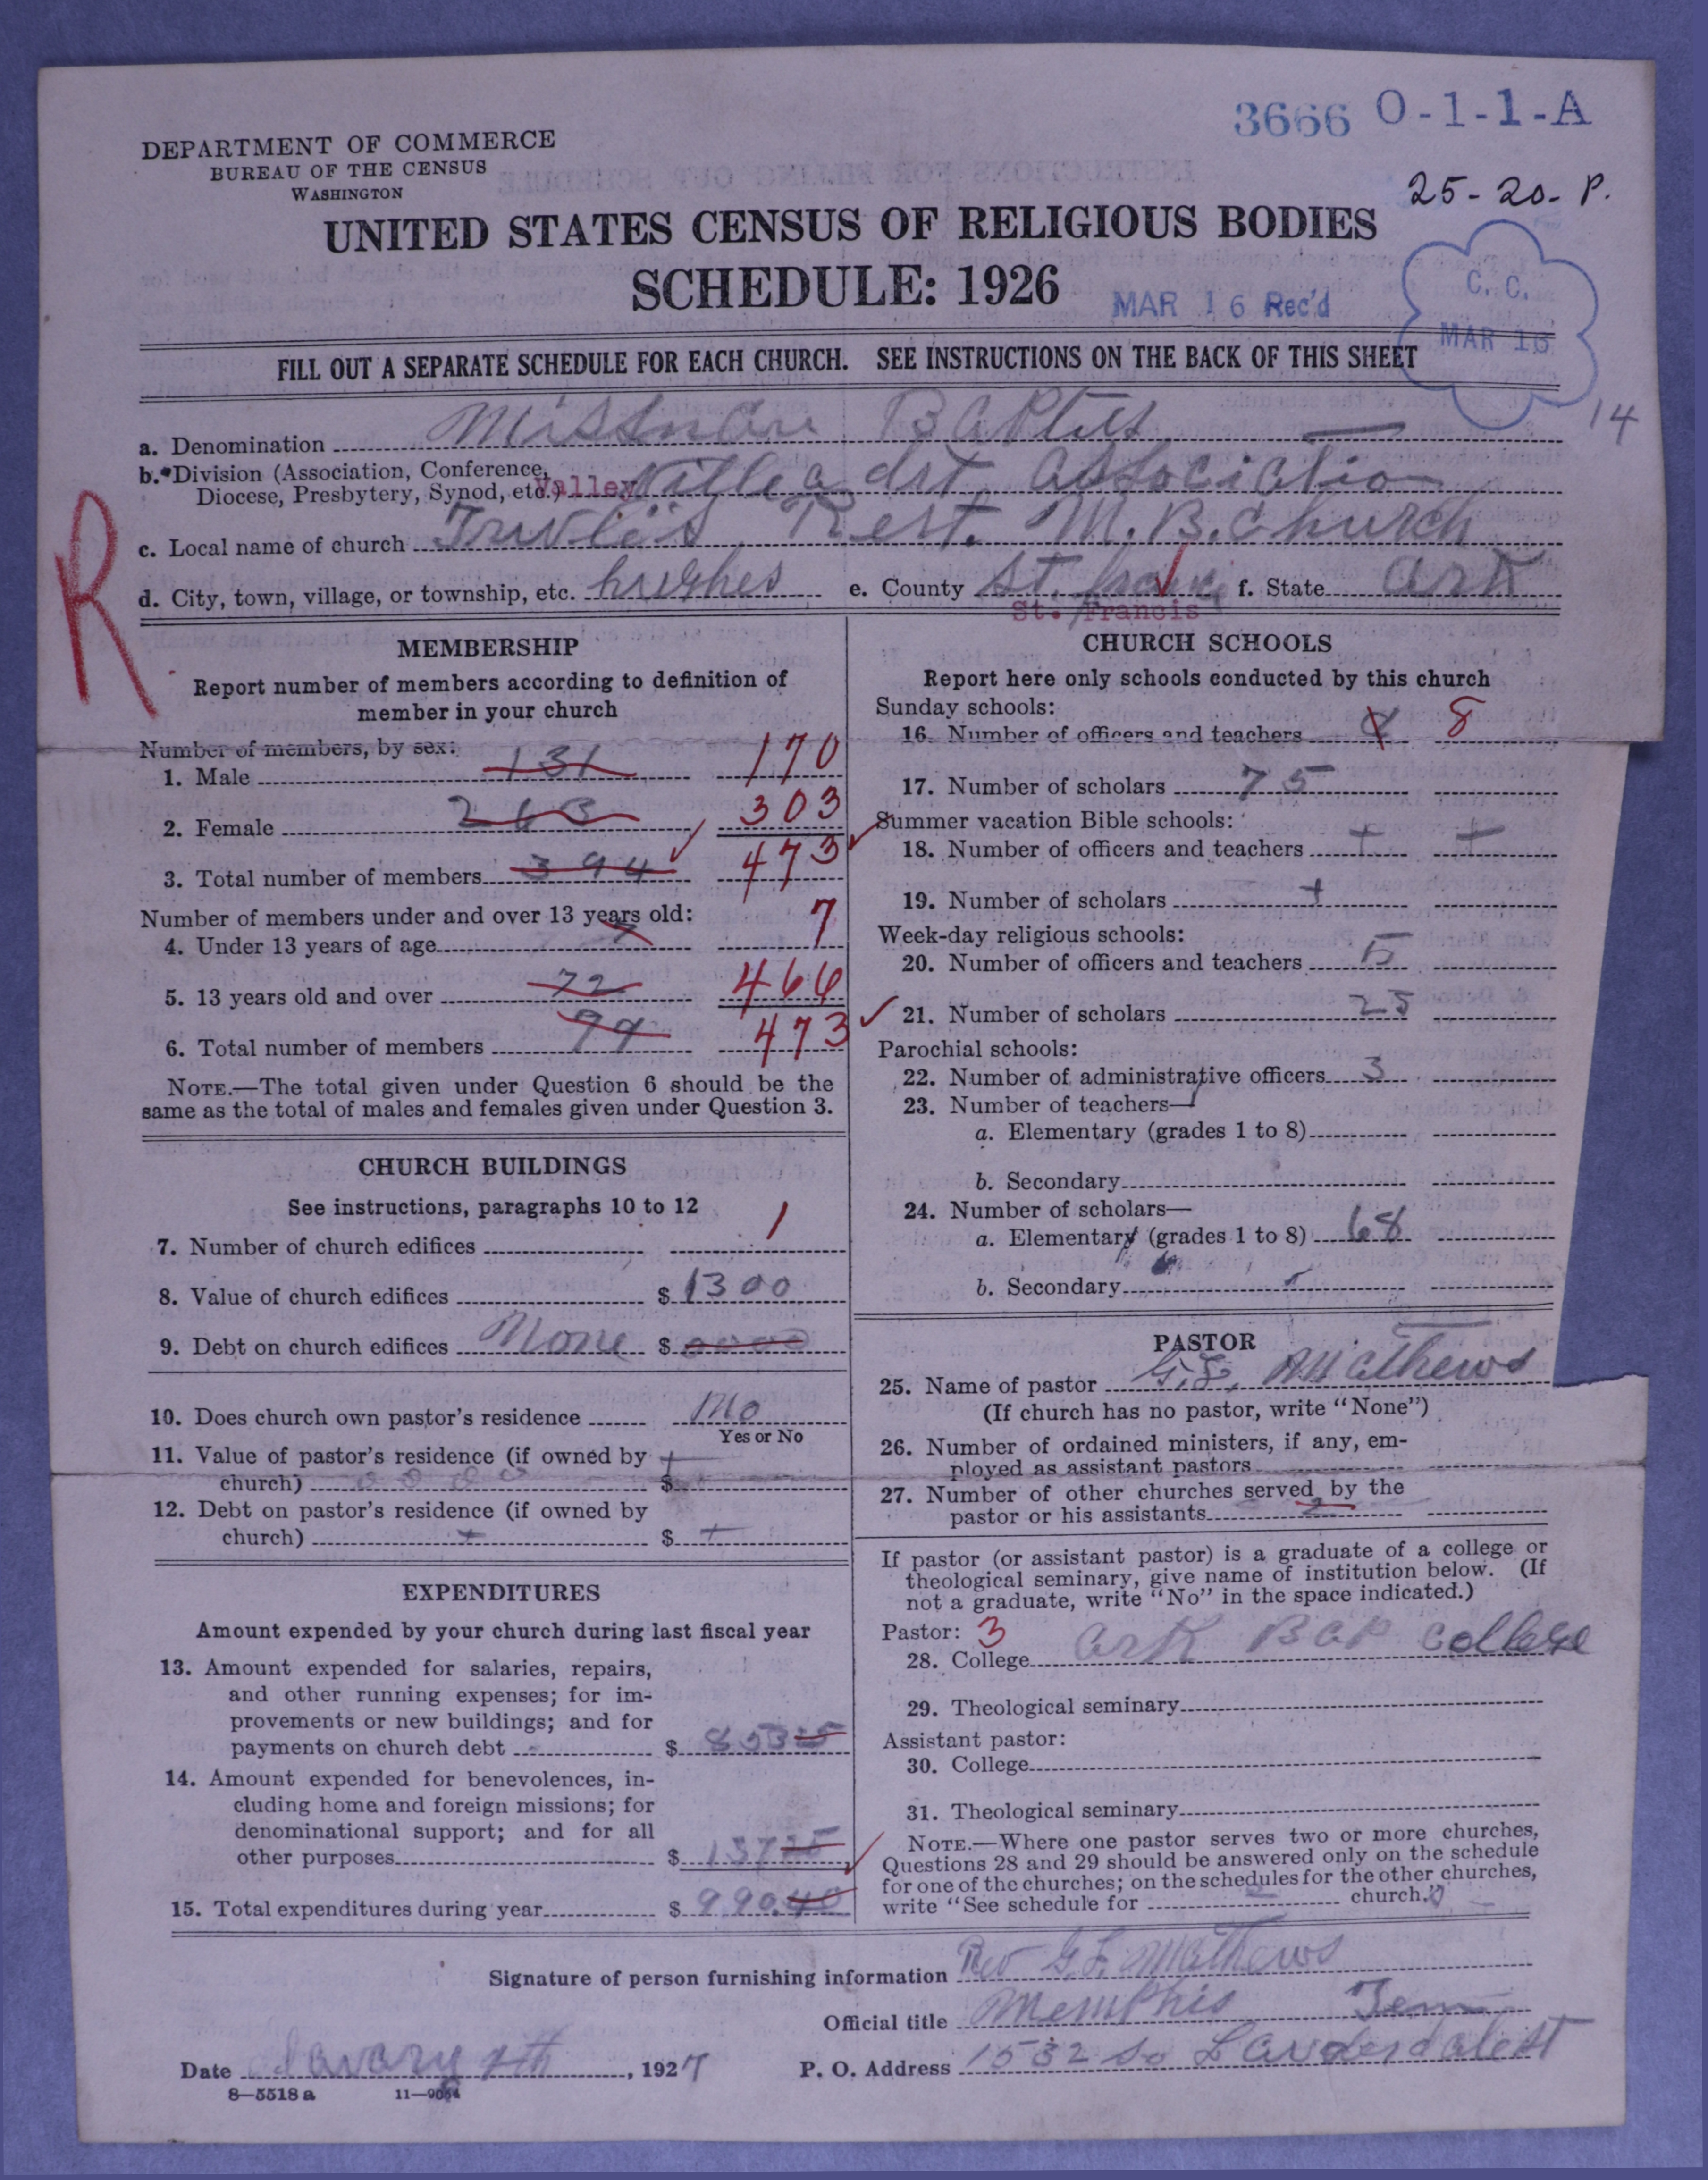 3666 O-1-1-A
DEPARTMENT OF COMMERCE
BUREAU OF THE CENSUS
WASHINGTON
25-20-P.
UNITED STATES CENSUS OF RELIGIOUS BODIES
SCHEDULE: 1926
MAR 16 Rec'd
C. C.
MAR 16
FILL OUT A SEPARATE SCHEDULE FOR EACH CHURCH. SEE INSTRUCTIONS ON THE BACK OF THIS SHEET
14
a. Denomination Baptist
b.*Division (Association, Conference,
Diocese, Presbytery, Synod, etc.) Valley dst. Associatio
c. Local name of church Rest. M. B. church
d. City, town, village, or township, etc. hughes e. County St. f. State Ark
St. Francis
R
MEMBERSHIP
Report number of members according to definition of
member in your church
Number of members, by sex:
1. Male 131 170
2. Female 263 303
3. Total number of members 394 473
Number of members under and over 13 years old:
4. Under 13 years of age 7 7
5. 13 years old and over 72 466
6. Total number of members 473
NOTE.—The total given under Question 6 should be the
same as the total of males and females given under Question 3.
CHURCH BUILDINGS
See instructions, paragraphs 10 to 12
7. Number of church edifices 1
8. Value of church edifices $ 1300
9. Debt on church edifices None $ 0000
10. Does church own pastor's residence No
Yes or No
11. Value of pastor's residence (if owned by
church) 0 0 0 0 $ +
12. Debt on pastor's residence (if owned by
church) + $ +
EXPENDITURES
Amount expended by your church during last fiscal year
13. Amount expended for salaries, repairs,
and other running expenses; for im-
provements or new buildings; and for
payments on church debt $ 85315
14. Amount expended for benevolences, in-
cluding home and foreign missions; for
denominational support; and for all
other purposes $ 13725
15. Total expenditures during year $ 990.40
CHURCH SCHOOLS
Report here only schools conducted by this church
Sunday schools:
16. Number of officers and teachers 8 8
17. Number of scholars 75
Summer vacation Bible schools:
18. Number of officers and teachers + +
19. Number of scholars +
Week-day religious schools:
20. Number of officers and teachers 5
21. Number of scholars 25
Parochial schools:
22. Number of administrative officers 3
23. Number of teachers—
a. Elementary (grades 1 to 8)
b. Secondary
24. Number of scholars—
a. Elementary (grades 1 to 8) 68
b. Secondary
PASTOR
25. Name of pastor G. L. Mathews
(If church has no pastor, write "None")
26. Number of ordained ministers, if any, em-
ployed as assistant pastors
27. Number of other churches served by the
pastor or his assistants 2
If pastor (or assistant pastor) is a graduate of a college or
theological seminary, give name of institution below. (If
not a graduate, write "No" in the space indicated.)
Pastor: 3
28. College Ark Bap College
29. Theological seminary
Assistant pastor:
30. College
31. Theological seminary
NOTE.—Where one pastor serves two or more churches,
Questions 28 and 29 should be answered only on the schedule
for one of the churches; on the schedules for the other churches,
write "See schedule for church."
Signature of person furnishing information Rev G. L. Mathews
Official title Memphis Tenn
Date 7th, 1927 P. O. Address 1532 So Lauderdale St
8—5518 a 11—9064